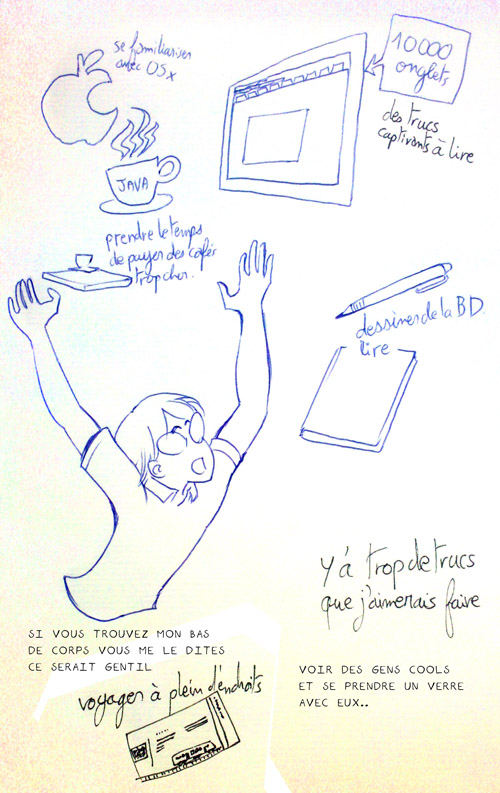 se familiariser
avec OSx
10000
onglets
des trucs
captivants à lire
JAVA
prendre le temps
de payer des cafés
trop cher.
dessiner de la BD.
lire
Y'á trop de trucs
que j'aimerais faire
SI VOUS TROUVEZ MON BAS
DE CORPS VOUS ME LE DITES
CE SERAIT GENTIL
voyager à plein d'endroits
VOIR DES GENS COOLS
ET SE PRENDRE UN VERRE
AVEC EUX..